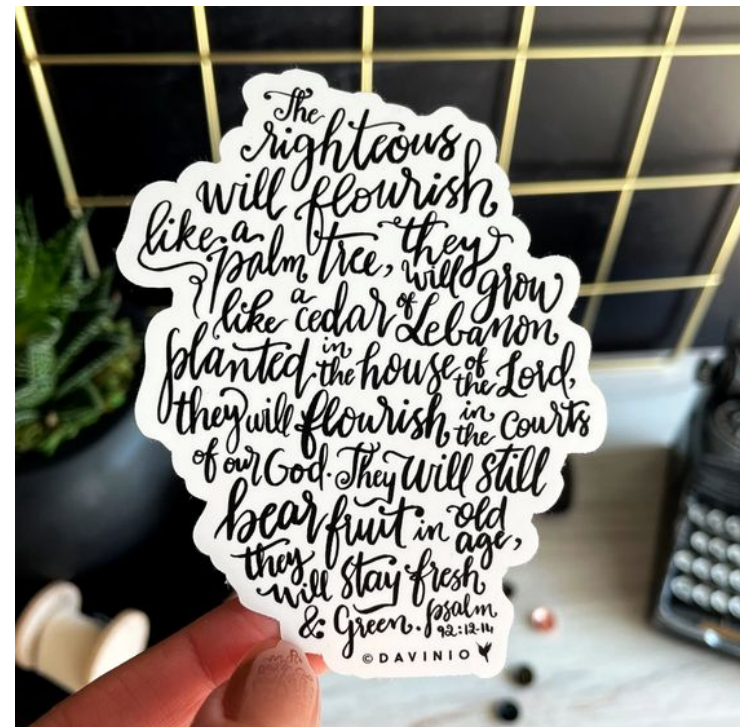 The
righteous
will flourish
like a palm tree, they
will grow
like a cedar of Lebanon,
planted in the house of the Lord,
they will flourish in the courts
of our God. They will still
bear fruit in old age,
they will stay fresh
& Green. Psalm
92:12-14
© DAVINIO